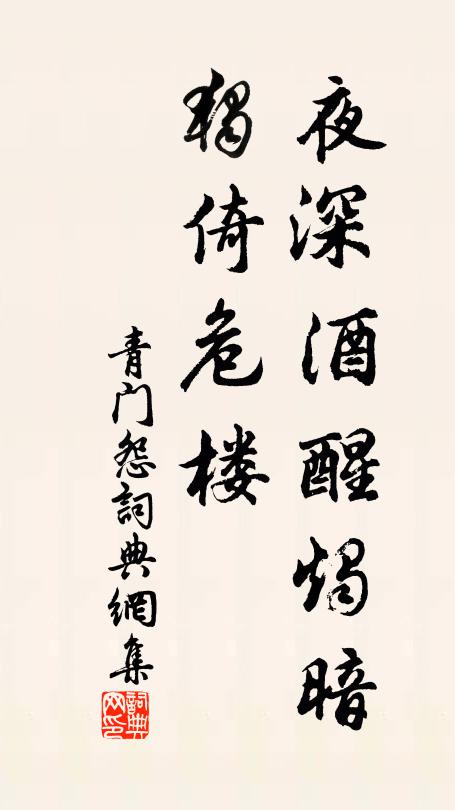 夜深酒醒烛暗
独倚危楼
青门怨詞典網集
詞典网印